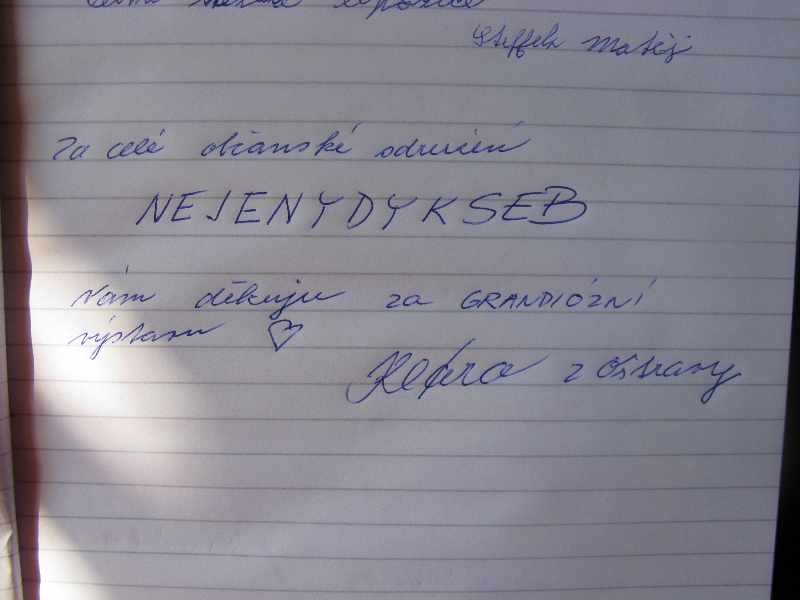 expozice
Matěj
Za celé občanské sdružení
NEJENYDYKSEB
Vám děkuju za GRANDIÓZNÍ
výstavu ♡
z Ostravy